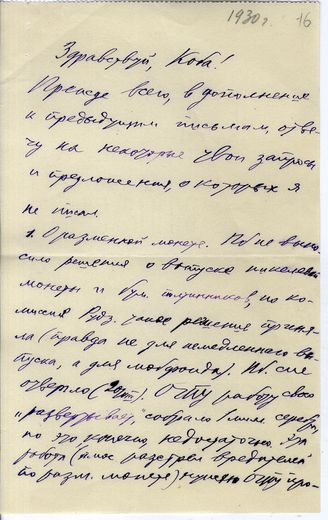 1930 г. 16
Здравствуй, Коба!
Прежде всего, в дополнение
к предыдущим письмам, отве-
чу на некоторые твои запросы
и предложения, о которых я
не писал.
1. О разменной монете. Пб не выно-
сило решения о выпуске никелевой
монеты и бум. полтинников, но ко-
миссия Рудз. такое решение приня-
ла (правда не для немедленного вы-
пуска, а для мобфонда). Пб. его
отвергло ОГПУ работу свою
"развертывает", собрало 1 мил. серебра,
но это конечно, недостаточно. Эта
работа (плюс расстрел вредителей
по разм. монете) нужно ОГПУ про-